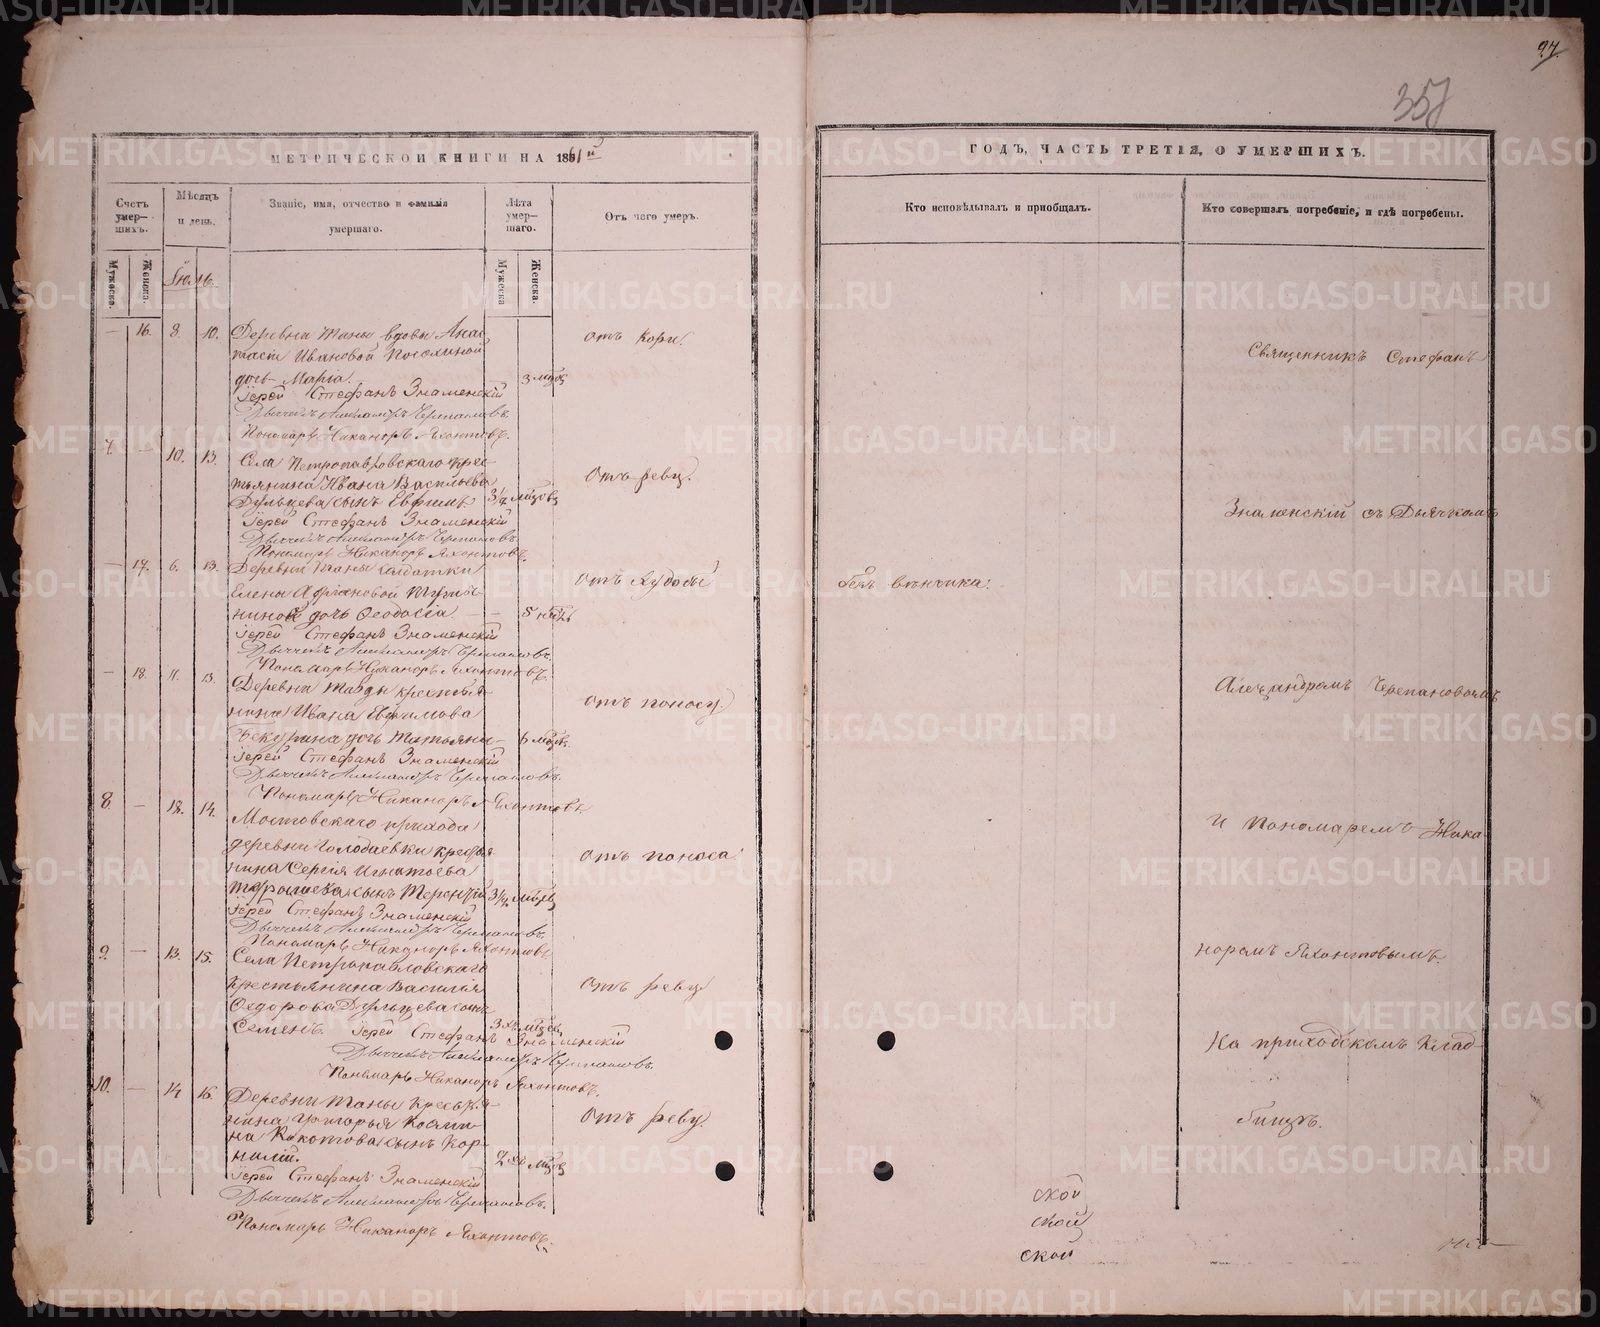 97.
357
МЕТРИЧЕСКОЙ КНИГИ НА 1861й
Счетъ умер-
шихъ.
Мѣсяцъ
и день.
Званіе, имя, отчество и фамилія
умершаго.
Лѣта
умер-
шаго.
Отъ чего умеръ.
Мужеска.
Женска.
Мужеска
Женска.
Іюль.
— 16. 8. 10. Деревни Таны вдовы Анас-
тасіи Ивановой
дочь Марія. 3 мѣсц
отъ кори.
Іерей Стефанъ Знаменскій
Дьячекъ Александръ Черепановъ.
Пономарь Никаноръ Яхонтовъ.
7 — 10. 13. Села Петропавловскаго крес-
тьянина Ивана Васильева
сынъ Евфимъ. 3½ мѣсцовъ
отъ реву.
Іерей Стефанъ Знаменскій
Дьячекъ Александръ Черепановъ.
Пономарь Никаноръ Яхонтовъ.
— 17. 6. 13. Деревни Таны солдатки
Елены
дочь Ѳеодосія. — 5
отъ худобы
Іерей Стефанъ Знаменскій
Дьячекъ Александръ Черепановъ.
Пономарь Никаноръ Яхонтовъ.
— 18. 11. 13. Деревни крестья-
нина Ивана Евфимова
дочь 6 мѣсц.
отъ поносу.
Іерей Стефанъ Знаменскій
Дьячекъ Александръ Черепановъ.
Пономарь Никаноръ Яхонтовъ.
8. — 12. 14. Мостовскаго прихода
деревни крестья
нина Сергія Игнатьева
сынъ Терентій 3½ мѣсцевъ
отъ поноса.
Іерей Стефанъ Знаменскій
Дьячекъ Александръ Черепановъ.
Пономарь Никаноръ Яхонтовъ
9. — 13. 15. Села Петропавловскаго
крестьянина Василія
Ѳедорова сынъ
Семенъ. 3хъ мѣсцевъ
отъ реву
Іерей Стефанъ Знаменскій
Дьячекъ Александръ Черепановъ.
Пономарь Никаноръ Яхонтовъ.
10. — 14 16. Деревни Таны крестья-
нина Григорья
сынъ Кор-
нилій. 2хъ мѣсцовъ
отъ реву.
Іерей Стефанъ Знаменскій
Дьячекъ Александръ Черепановъ.
Пономарь Никаноръ Яхонтовъ.
ГОДЪ, ЧАСТЬ ТРЕТІЯ, О УМЕРШИХЪ.
Кто исповѣдывалъ и пріобщалъ.
Кто совершалъ погребеніе, и гдѣ погребены.
безъ вѣнчика.
Священникъ Стефанъ
Знаменскій съ Дьячкомъ
Александромъ Черепановымъ
и Пономаремъ Ника-
норомъ Яхонтовымъ.
На приходскомъ клад-
бищѣ.
ской
ской
ской
METRIKI.GASO-URAL.RU